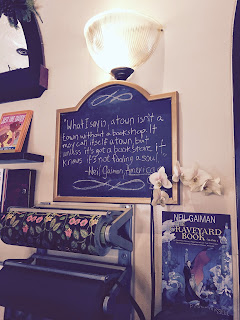 "What I say is, a town isn't a
town without a bookshop. It
may call itself a town, but
unless it's got a bookstore it
knows it's not fooling a soul."
-Neil Gaiman,
NEIL GAIMAN
GRAVEYARD
BOOK